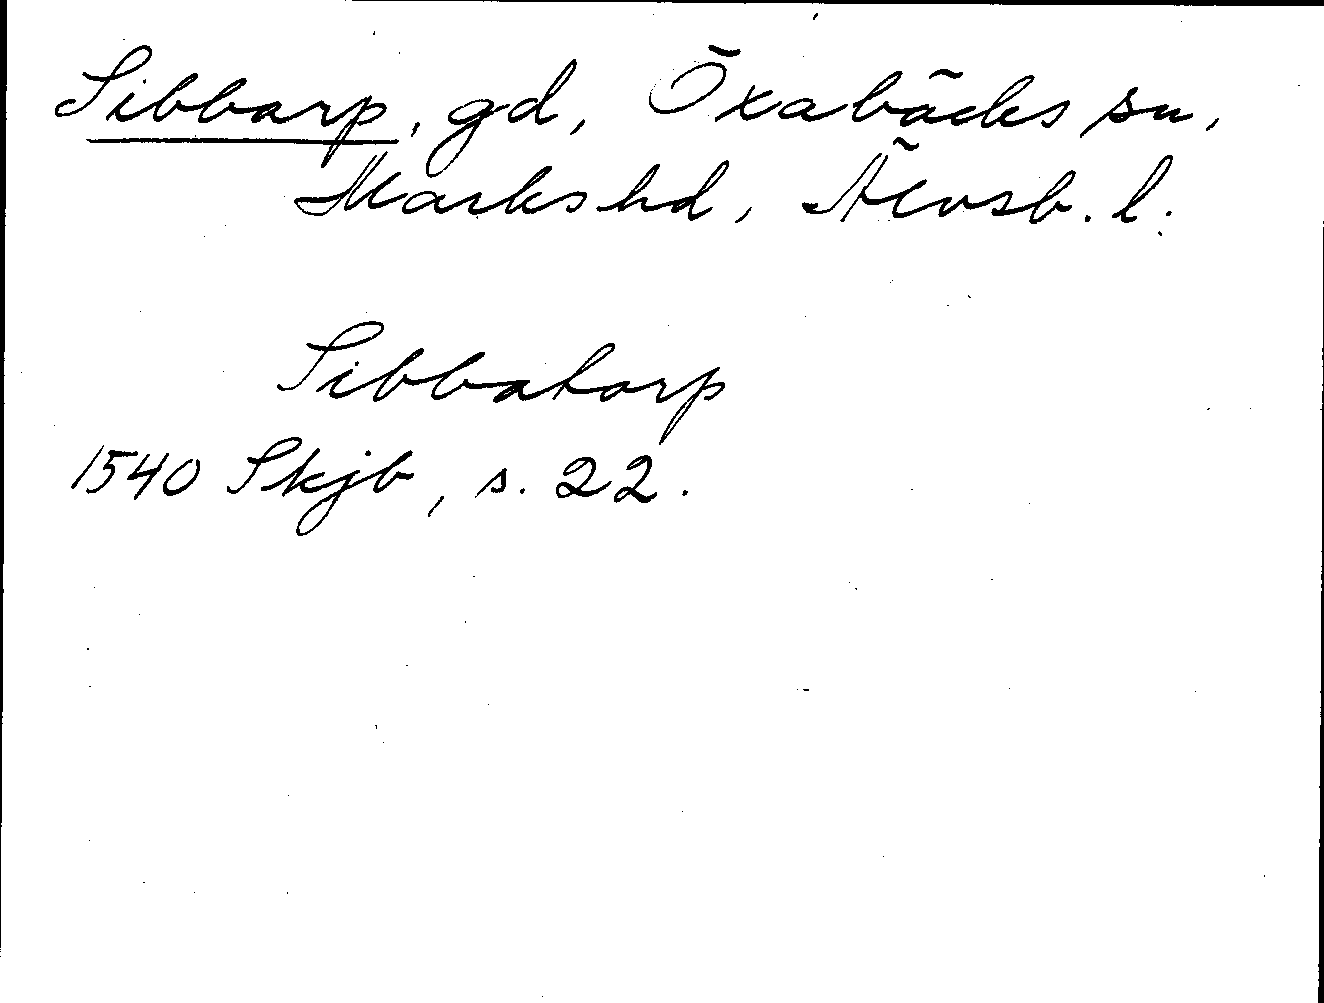 Sibbarp, gd, Öxabäcks sn,
Marks hd, Älvsb. l.
Sibbatorp
1540 Skjb, s. 22.